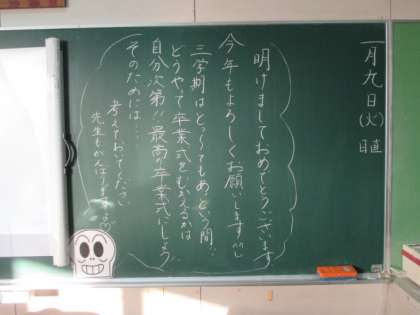 一月九日(火)
日直
明けましておめでとうございます
今年もよろしくお願いします
三学期はとってもあっという間!!
どうやって卒業式をむかえるかは
自分次第!!最高の卒業式にしよう
そのためには…
考えておいてください
先生もがんばります